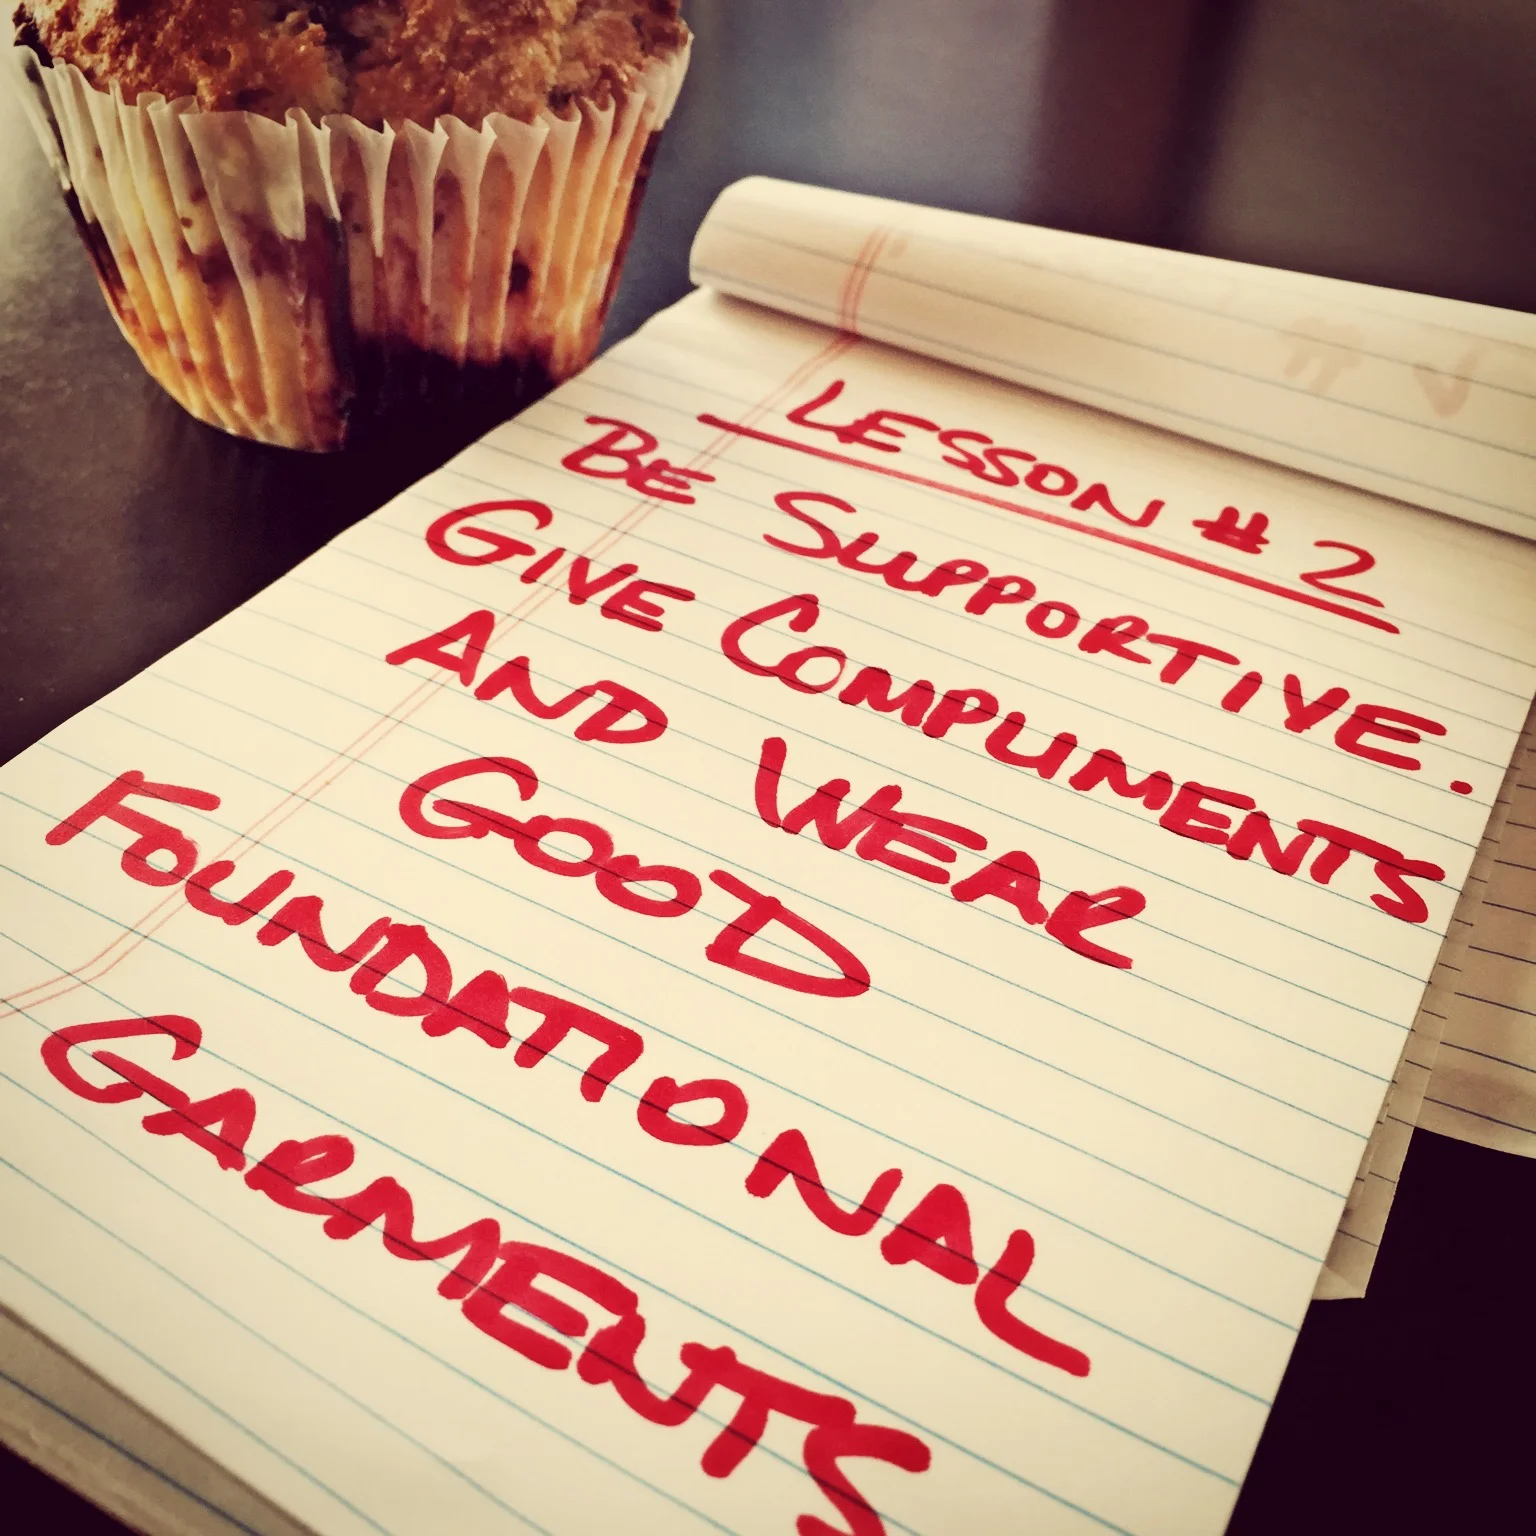 LESSON #2
BE SUPPORTIVE.
GIVE COMPLIMENTS
AND WEAR
GOOD
FOUNDATIONAL
GARMENTS